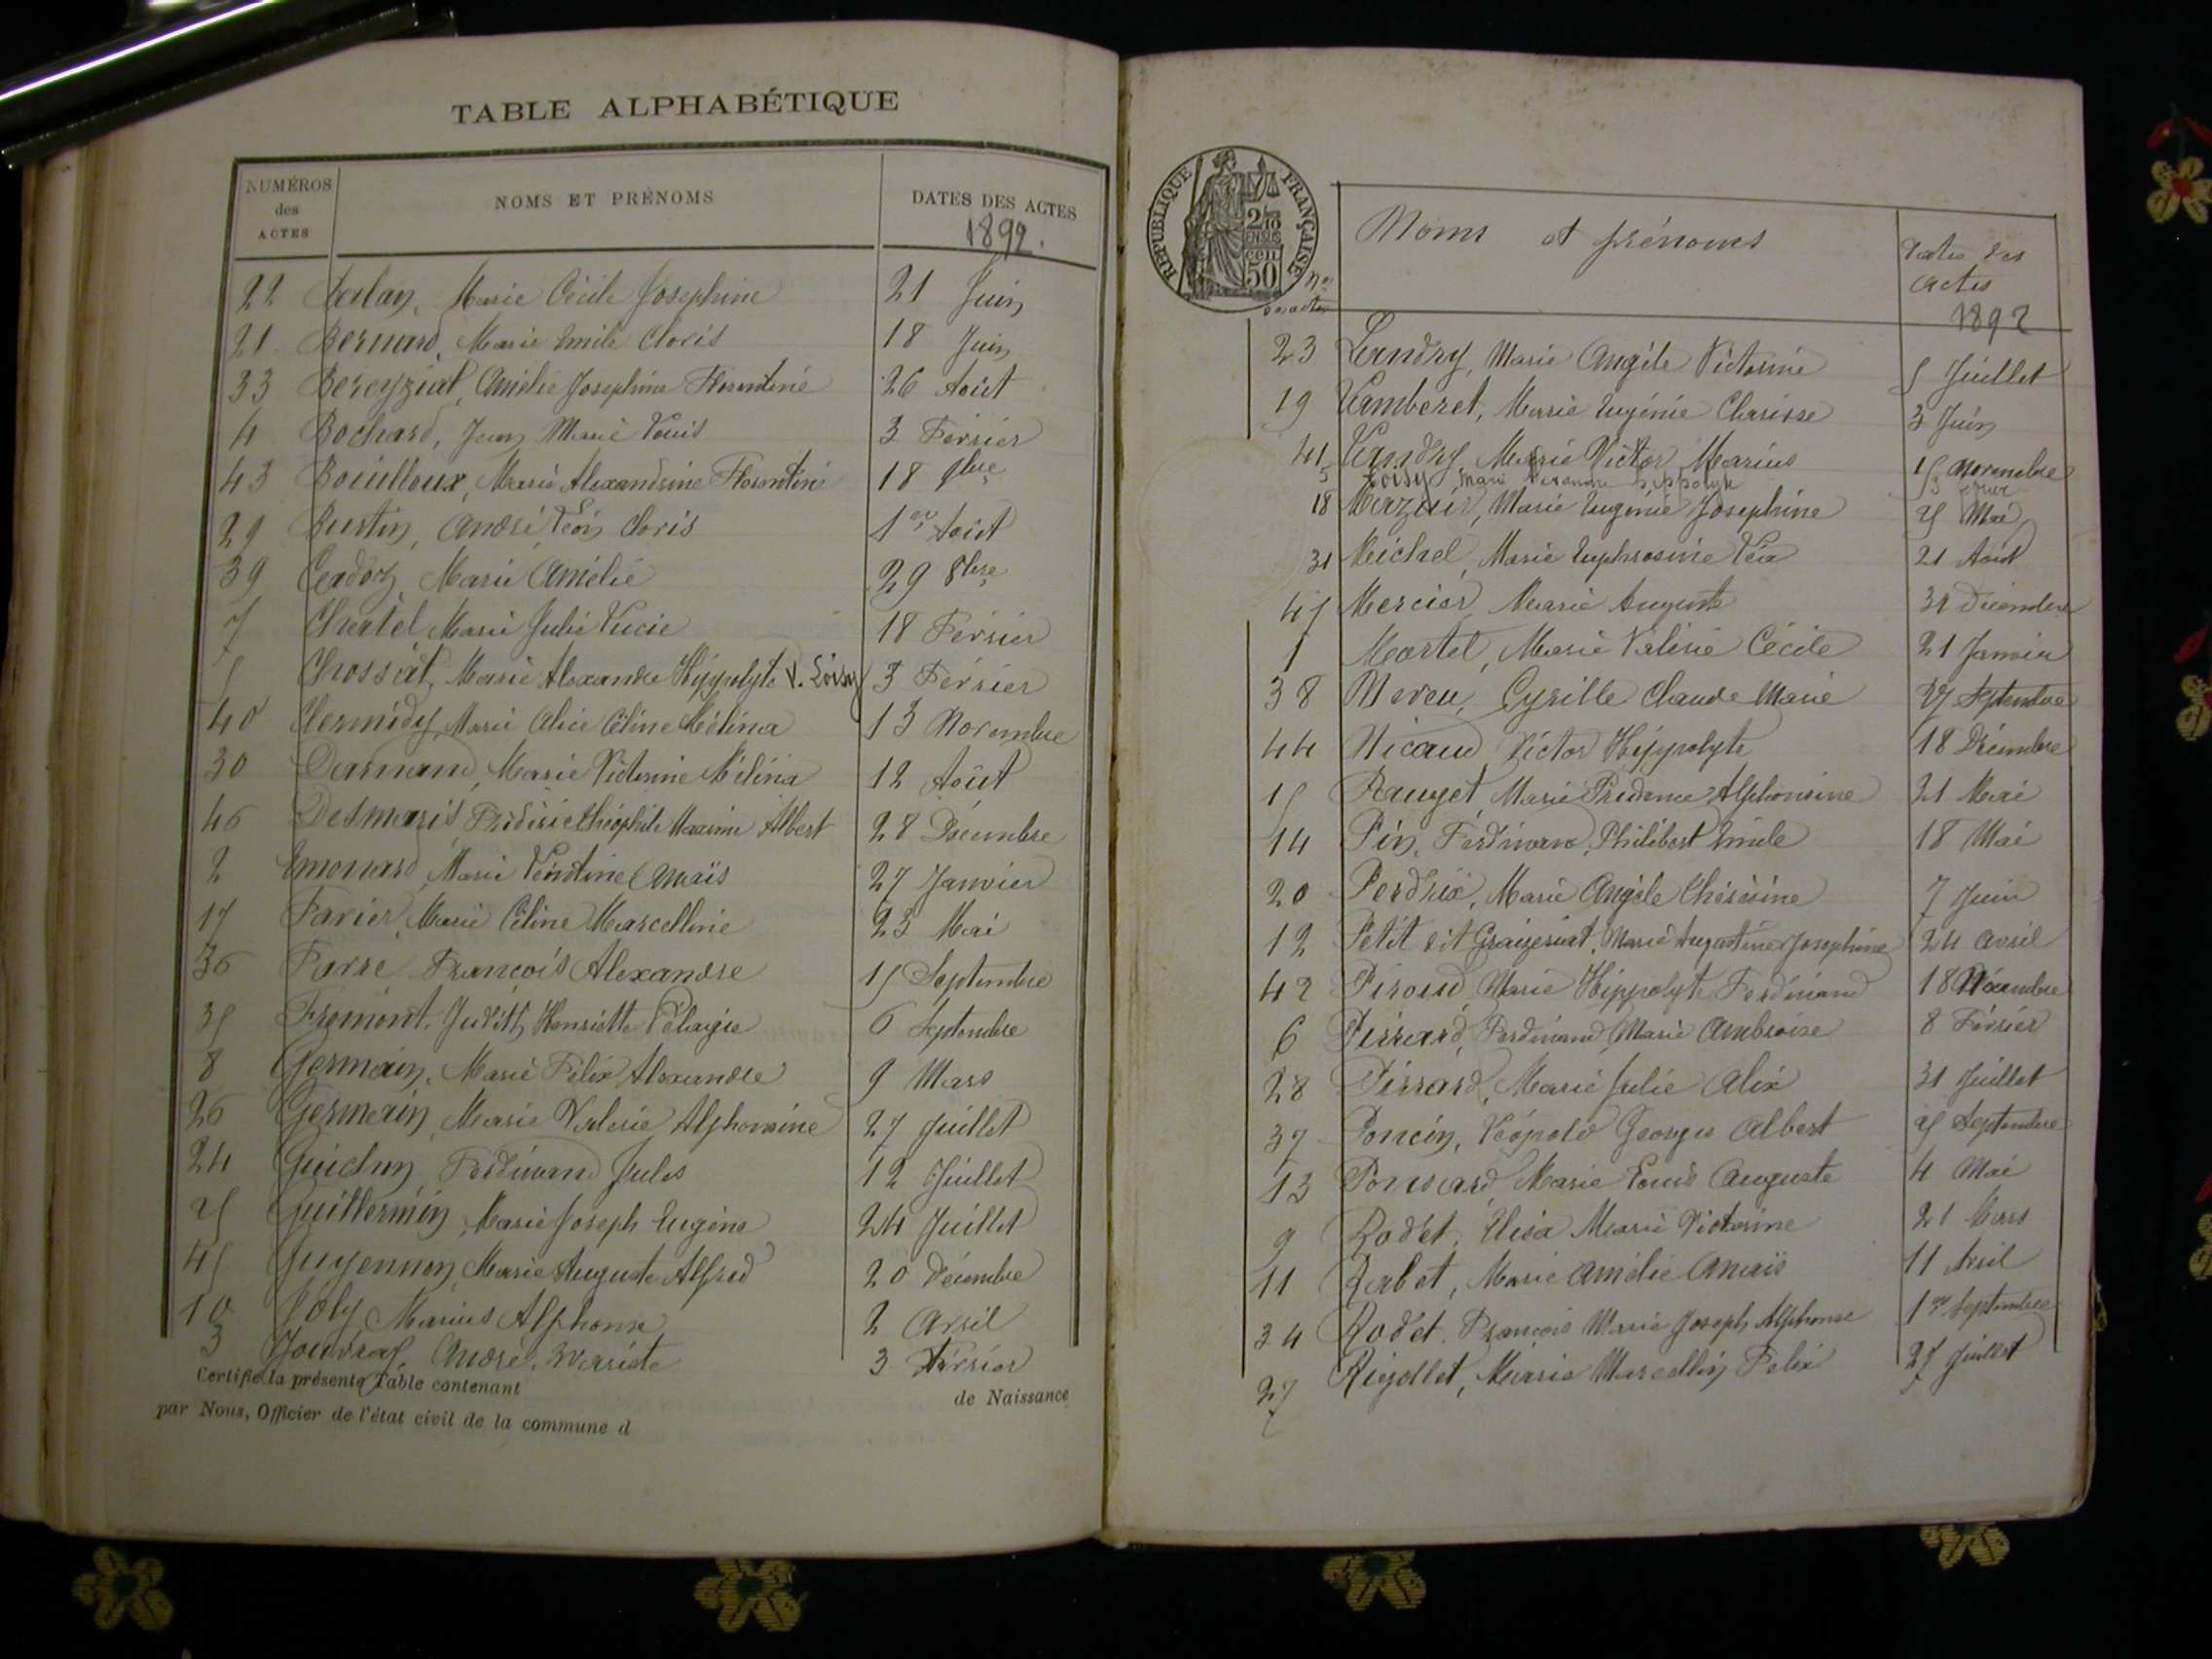 TABLE ALPHABÉTIQUE
NUMÉROS des ACTES
NOMS ET PRÉNOMS
DATES DES ACTES
1892.
22 Marie Cécile Josephine 21 Juin
21 Bernard, Marie Emile Cloris 18 Juin
33 Bereyziat, Amélie Josephine Florentine 26 Août
4 Bochard, Jean Marie Louis 3 Février
43 Bouilloux, Marie Alexandrine Florentine 18 9bre
29 Bustin, André Léon Cloris 1er Août
39 Cadoz, Marie Amélie 29 8bre
7 Chatel Marie Julie Lucie 18 Février
5 Chossat, Marie Alexandre Hyppolyte V. Loisy 3 Février
40 Clermidy, Marie Alice Céline Mélina 13 Novembre
30 Darnand, Marie Victorine Mélina 12 Août
46 Desmaris Frédéric Théophile Maxime Albert 28 Décembre
2 Emonard, Marie Léontine Anaïs 27 Janvier
17 Favier, Marie Céline Marcelline 23 Mai
36 Farre François Alexandre 15 Septembre
35 Fremont, Judith Henriette Pélagie 6 Septembre
8 Germain, Marie Félix Alexandre 9 Mars
26 Germain, Marie Valerie Alphonsine 27 Juillet
24 Guichon, Ferdinand Jules 12 Juillet
25 Guillermin, Marie Joseph Eugène 24 Juillet
45 Guyennon, Marie Auguste Alfred 20 Décembre
10 Joly Marius Alphonse 2 Avril
3 André, Evariste 3 Février
Certifié la présente Table contenant de Naissance
par Nous, Officier de l'état civil de la commune d
RÉPUBLIQUE FRANÇAISE
2/10 EN SUS
50 cen
Nos des actes
Noms et prénoms
Dates des actes
1892
23 Landry, Marie Angèle Victorine 5 Juillet
19 Lamberet, Marie Eugénie Clarisse 3 Juin
41 Landry, Marie Victor Marius 15 Novembre
5 Loisy Marie Alexandre Hippolyte 3 février
18 Mazuir, Marie Eugénie Josephine 25 Mai
31 Michel, Marie Euphrosine Léa 21 Août
47 Mercier, Marie Auguste 31 Décembre
1 Martel, Marie Valérie Cécile 21 Janvier
38 Moreu, Cyrille Claude Marie 27 Septembre
44 Nicaud Victor Hyppolyte 18 Décembre
15 Pauget Marie Prudence Alphonsine 21 Mai
14 Pin, Ferdinand, Philibert Emile 18 Mai
20 Perdrix, Marie Angèle Thérésine 7 Juin
12 Petit dit Grangeriat, Marie Augustine Josephine 24 Avril
42 Piroud, Marie Hippolyte Ferdinand 18 Novembre
6 Pirrard, Ferdinand Marie Ambroise 8 Février
28 Pirrard, Marie Julie Alix 31 Juillet
37 Poncin, Léopold Georges Albert 25 Septembre
13 Ponsard, Marie Louis Auguste 4 Mai
9 Rodet, Elisa Marie Victorine 21 Mars
11 Rabet, Marie Amélie Anaïs 11 Avril
34 Rodet, François Marie Joseph Alphonse 1er Septembre
27 Rigollet, Marie Marcellin Felix 27 Juillet